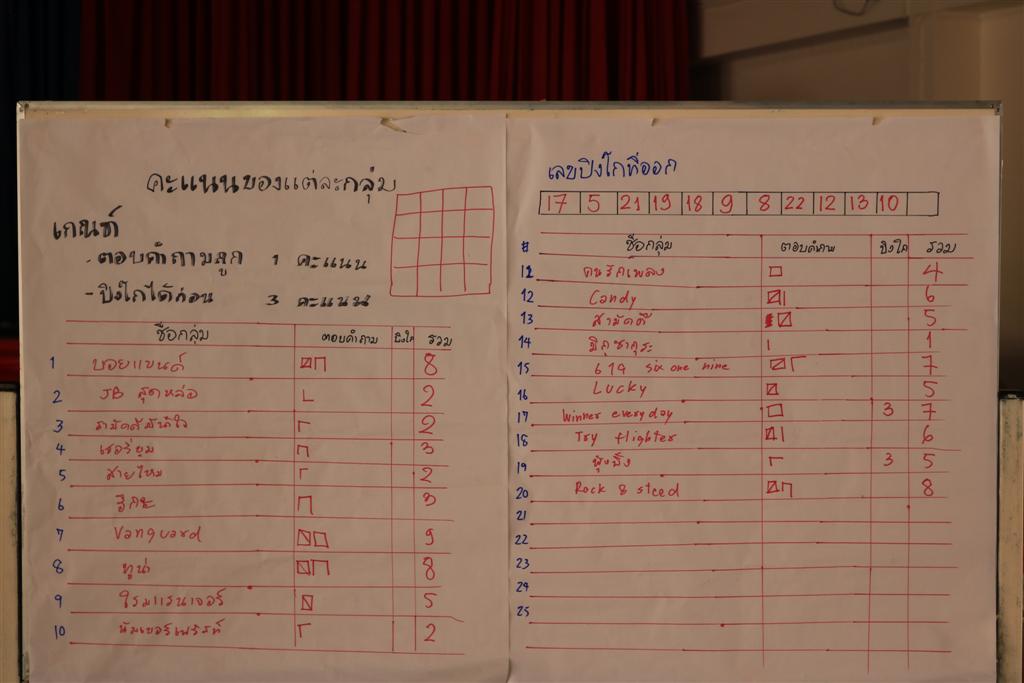 คะแนนของแต่ละกลุ่ม
เกณฑ์
- ตอบคำถามถูก 1 คะแนน
- ปิงโกได้ก่อน 3 คะแนน
ชื่อกลุ่ม ตอบคำถาม ปิงโก รวม
1 บอยแบนด์ 8
2 JB สุดหล่อ 2
3 2
4 3
5 สายไหม 2
6 3
7 Vanguard 9
8 ทูน่า 8
9 5
10 2
เลขปิงโกที่ออก
17 5 21 19 18 9 8 22 12 13 10
# ชื่อกลุ่ม ตอบคำถาม ปิงโก รวม
11 คนรักเพลง 4
12 Candy 6
13 สามัคคี 5
14 1
15 619 six one nine 7
16 Lucky 5
17 Winner everyday 3 7
18 Try flighter 6
19 3 5
20 Rock & 8
21
22
23
24
25